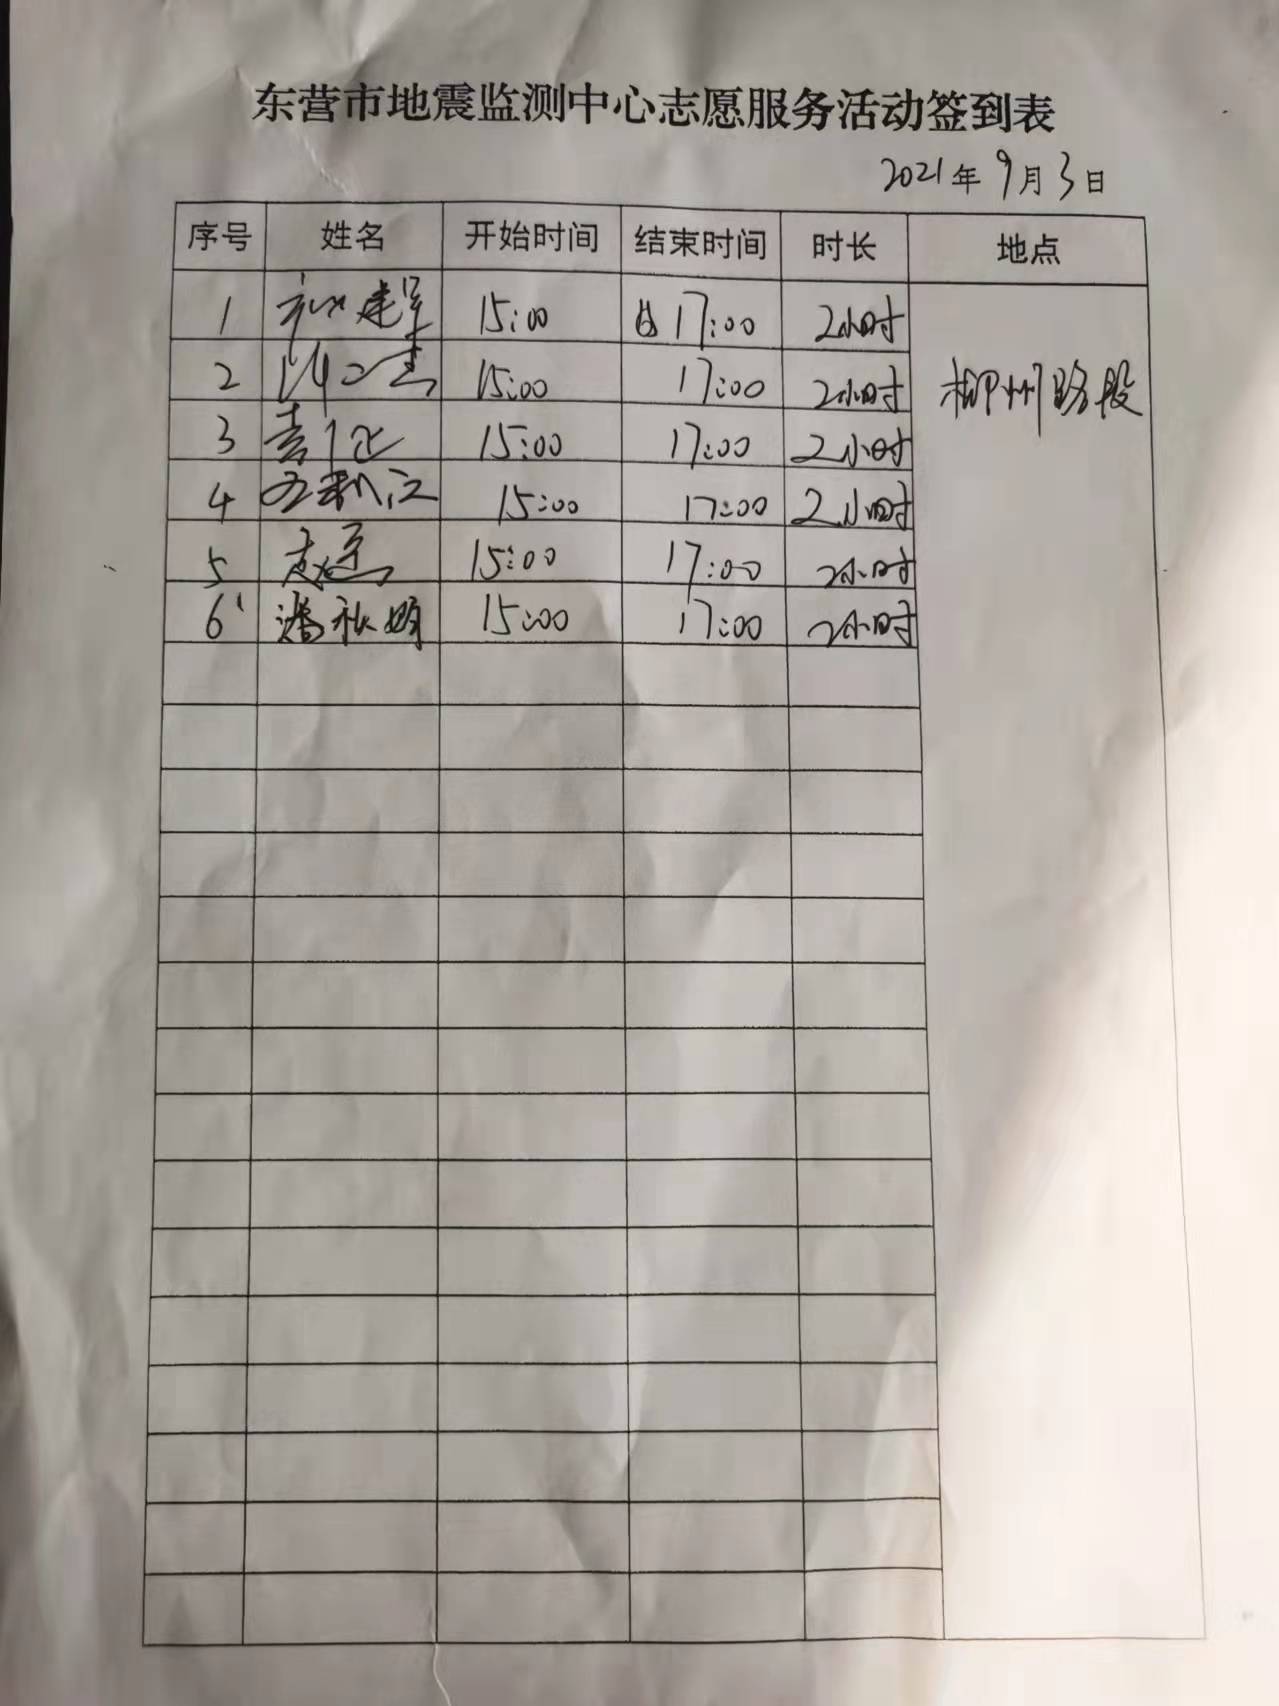 东营市地震监测中心志愿服务活动签到表
2021年9月3日
序号 姓名 开始时间 结束时间 时长 地点
1 15:00 17:00 2小时
2 15:00 17:00 2小时 柳州路段
3 15:00 17:00 2小时
4 15:00 17:00 2小时
5 15:00 17:00 2小时
6 潘秋娟 15:00 17:00 2小时